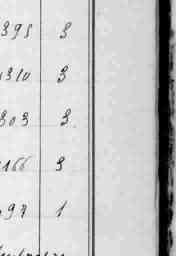 395 3
1310 3
303 3
166 3
97 1